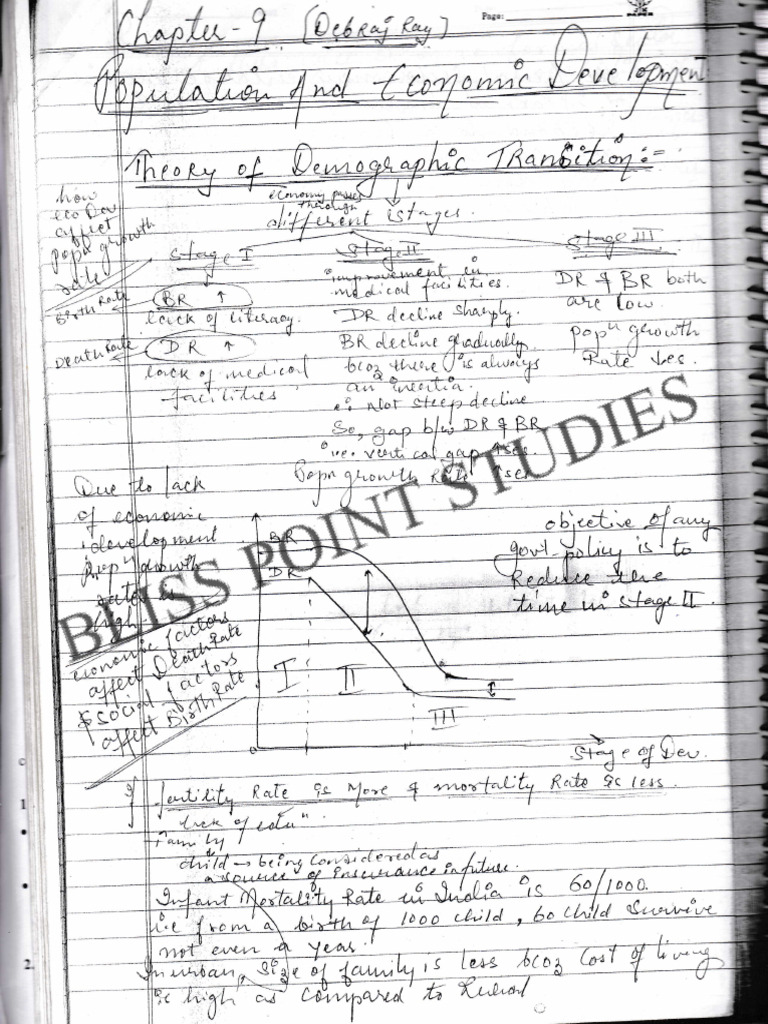 Page:
Chapter-9 (Debraj Ray)
Population And Economic Development
Theory of Demographic Transition:-
economy passes
through
different stages.
how
eco Dev
affect
popn growth
rate
Stage I
Birth Rate
BR ↑
lack of literacy.
Death Rate
DR ↑
lack of medical
facilities
Stage II
improvement in
medical facilities.
DR decline sharply.
BR decline gradually
bcoz there is always
an inertia.
i.e. Not steep decline
So, gap b/w DR & BR
i.e. vertical gap ↑ses.
Popn growth Rate ↑ses
Stage III
DR & BR both
are low.
popn growth
Rate ↓es.
Due to lack
of economic
development
popn growth
rate is
high
economic factors
affect Death Rate
& social factors
affect Birth Rate
BR
DR
I
II
III
0
Stage of Dev.
objective of any
govt. policy is to
Reduce the
time in stage II.
BLISS POINT STUDIES
If fertility Rate is More & mortality Rate is less
lack of edun
Family
child → being considered as
a source of insurance in future.
Infant Mortality Rate in India is 60/1000.
i.e from a birth of 1000 child, 60 child survive
not even a year.
In urban, size of family is less bcoz cost of living
is high as compared to
1
2.